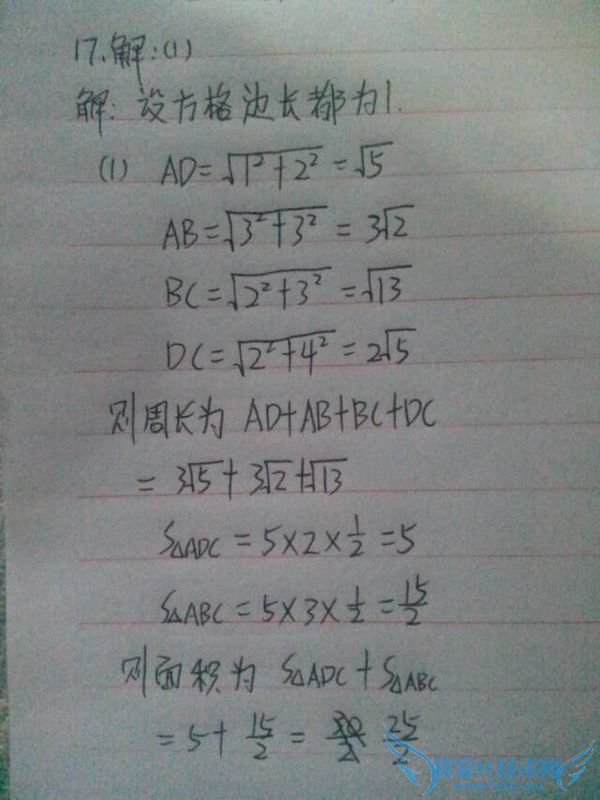 17.解:(1)
解:设方格边长都为1.
(1) AD=√(1²+2²)=√5
AB=√(3²+3²)=3√2
BC=√(2²+3²)=√13
DC=√(2²+4²)=2√5
则周长为 AD+AB+BC+DC
=3√5+3√2+√13
S△ADC=5×2×1/2=5
S△ABC=5×3×1/2=15/2
则面积为 S△ADC+S△ABC
=5+15/2= 25/2